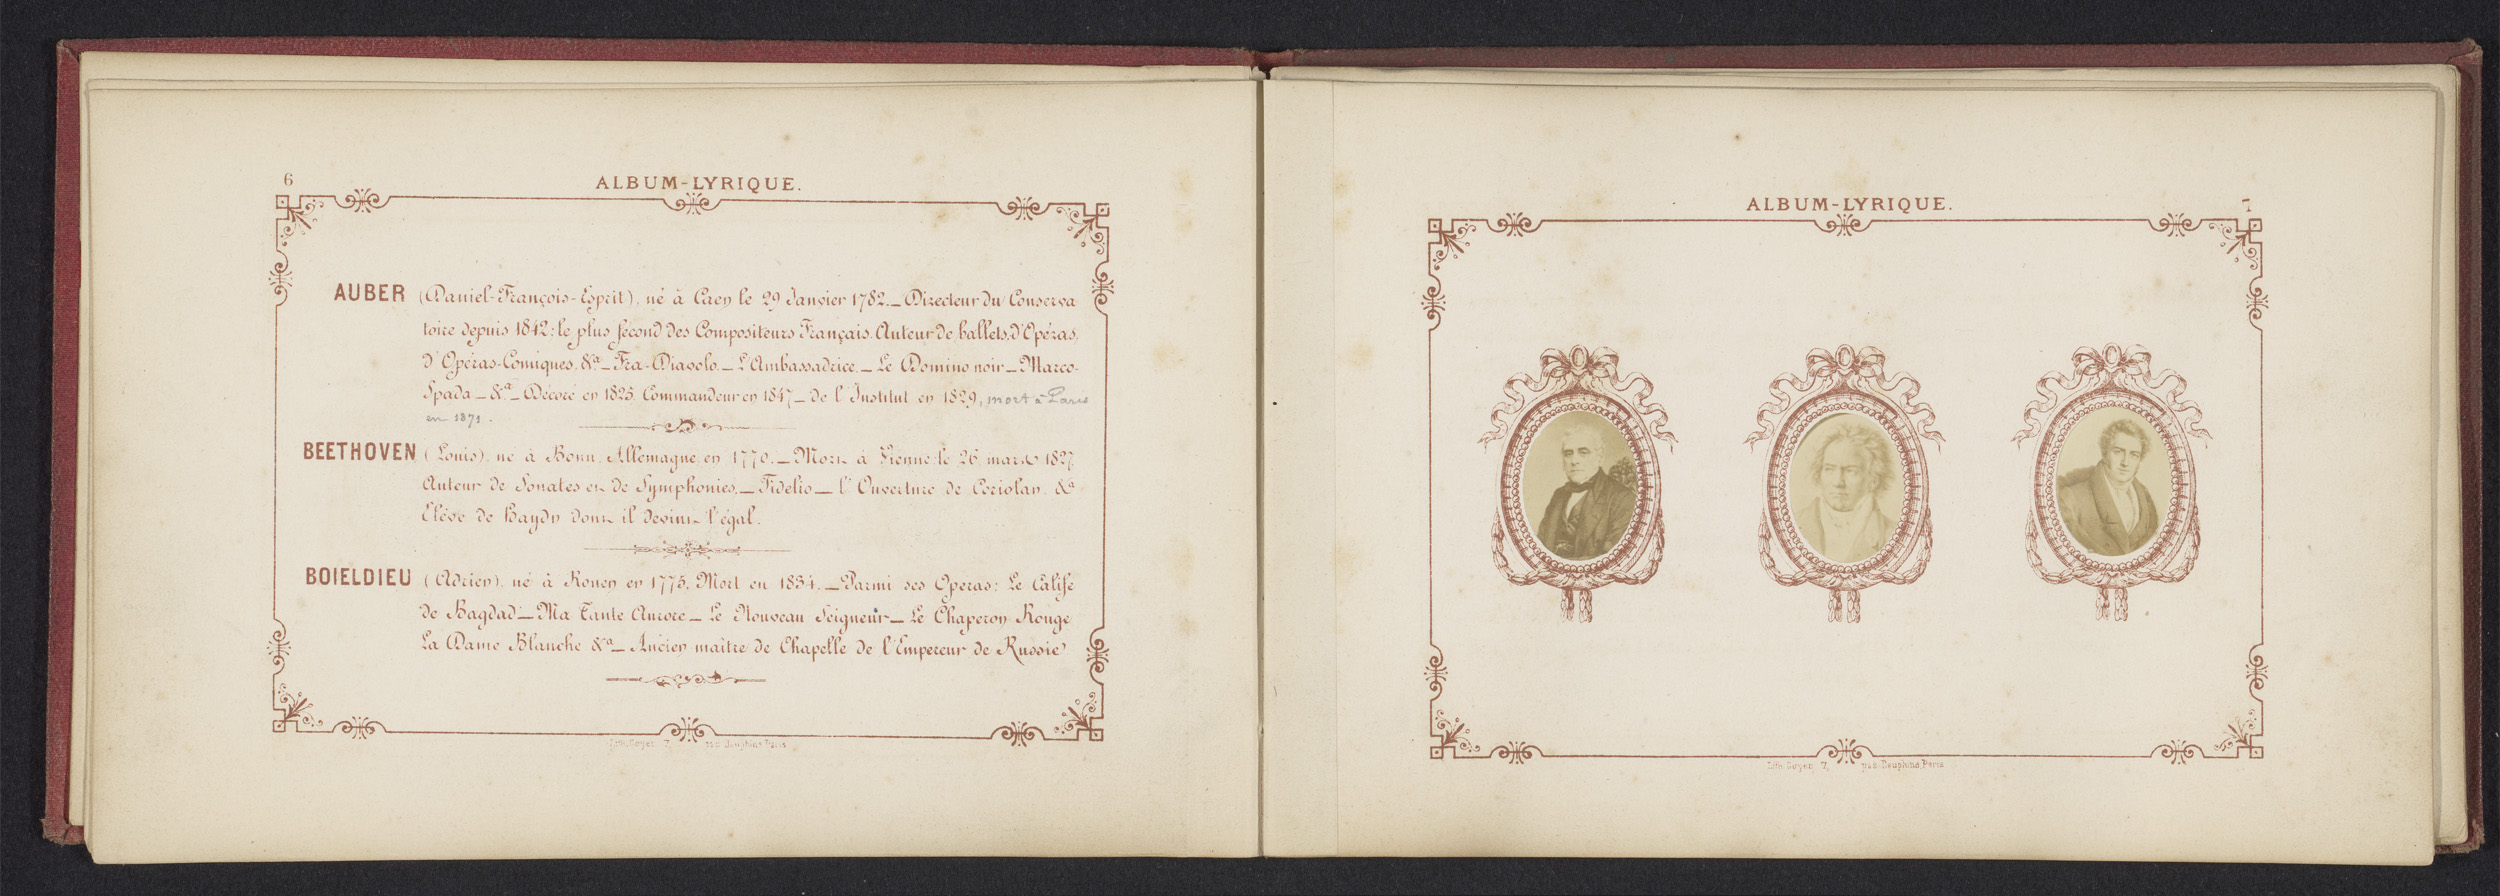 6
ALBUM-LYRIQUE.
AUBER (Daniel-François-Esprit), né à Caen le 29 Janvier 1782._Directeur du Conserva
toire depuis 1842: le plus fécond des Compositeurs Français. Auteur de ballets, d'Opéras,
d'Opéras-Comiques, &a_Fra-Diavolo._L'Ambassadrice._Le Domino noir_Marco-
Spada_&a_Décoré en 1825. Commandeur en 1847_de l'Institut en 1829, mort à Paris
en 1871.
BEETHOVEN (Louis), né à Bonn, Allemagne, en 1770._Mort à Vienne le 26 mars 1827.
Auteur de Sonates et de Symphonies._Fidelio_l'Ouverture de Coriolan, &a
Elève de Haydn dont il devint l'égal.
BOIELDIEU (Adrien), né à Rouen en 1775. Mort en 1834._Parmi ses Opéras: Le Calife
de Bagdad_Ma Tante Aurore_Le Nouveau Seigneur_Le Chaperon Rouge
La Dame Blanche &a_Ancien maître de Chapelle de l'Empereur de Russie
Lith. Goyer 7, pas. Dauphine Paris
ALBUM-LYRIQUE.
7
Lith. Goyer 7, pas. Dauphine, Paris